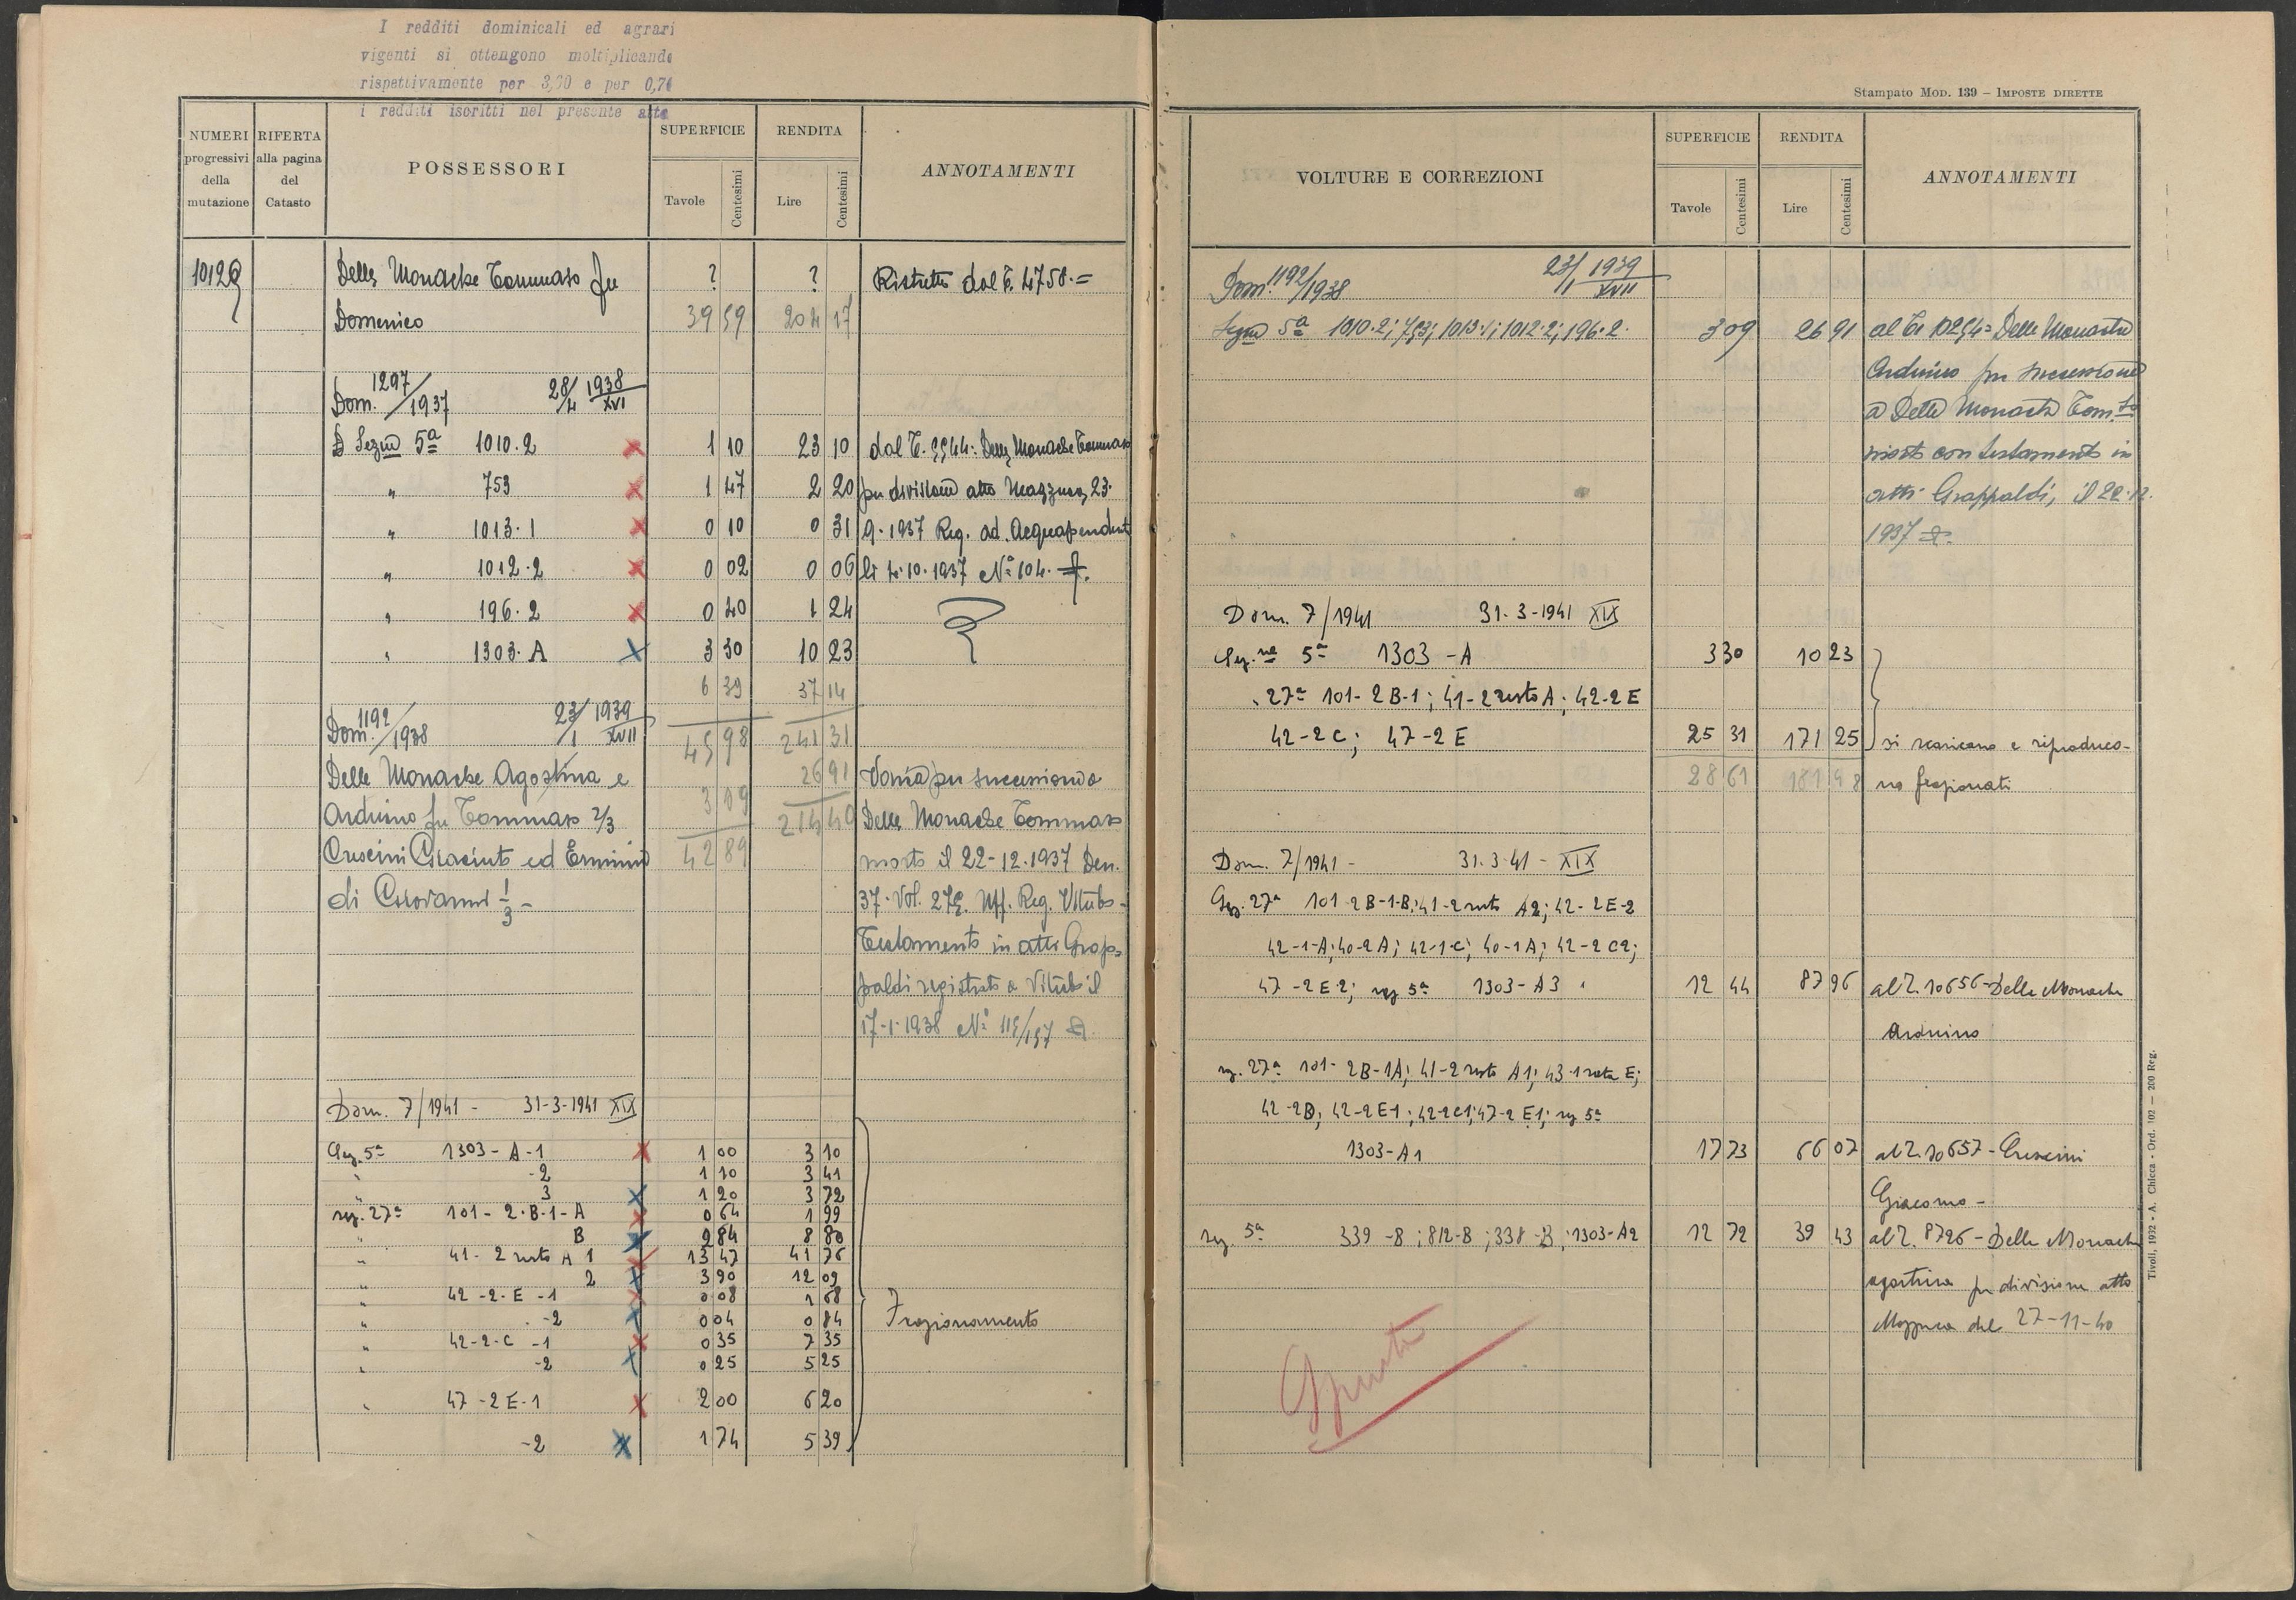 I redditi dominicali ed agrari
vigenti si ottengono moltiplicando
rispettivamente per 3,30 e per 0,70
i redditi iscritti nel presente atto
NUMERI progressivi della mutazione
RIFERTA alla pagina del Catasto
POSSESSORI
SUPERFICIE
Tavole Centesimi
RENDITA
Lire Centesimi
ANNOTAMENTI
10129 Delle Monache Tommaso fu ? ? Ristretto dal T. 4758.=
Domenico 39 59 204 17
Dom. 1297/1937 28/4 1938 XVI
Sezne 5a 1010.2 1 10 23 10 dal T. 9544: Delle Monache Tommaso
" 753 1 47 2 20 per divisione atto Mazzuca, 23.
" 1013.1 0 10 0 31 9.1937 Reg. ad. Acquapendente
" 1012.2 0 02 0 06 li 4.10.1937 No 104.
" 196.2 0 40 1 24
" 1303.A 3 30 10 23
6 39 37 14
Dom. 1192/1938 23/1 1939 XVII 45 98 241 31
Delle Monache Agostina e 26 91 Varia per successione a
Arduino fu Tommaso 2/3 3 09 214 40 Delle Monache Tommaso
Crescini Giacinto ed Erminio 42 89 morto il 22-12.1937 Den.
di Giovanni 1/3 - 37. Vol. 279. Uff. Reg. Viterbo -
Testamento in atti Grap=
paldi registrato a Viterbo il
17-1-1938 No 115/157
Dom. 7/1941 - 31-3-1941 XIX
Sez. 5a 1303-A-1 1 00 3 10
" -2 1 10 3 41
" 3 1 20 3 72
sez. 27a 101-2.B-1-A 0 64 1 99
" B 2 84 8 80
" 41-2 resto A 1 13 47 41 76
" 2 3 90 12 09
" 42-2-E-1 0 08 1 68
" -2 0 04 0 84
" 42-2-C-1 0 35 7 35
" -2 0 25 5 25
" 47-2E-1 2 00 6 20
-2 1 74 5 39
Frazionamento
Stampato Mod. 139 – Imposte dirette
VOLTURE E CORREZIONI
SUPERFICIE
Tavole Centesimi
RENDITA
Lire Centesimi
ANNOTAMENTI
Dom. 1192/1938 23/1 1939 XVII
Sezne 5a 1010.2; 753; 1013.1; 1012.2; 196.2. 3 09 26 91 al T. 10254= Delle Monache
Arduino per successione
a Delle Monache Tom.so
morto con testamento in
atti Grappaldi, il 22.12.
1937
Dom. 7/1941 31-3-1941 XIX
Sez.ne 5a 1303-A 3 30 10 23
" 27a 101-2B-1; 41-2 resto A; 42-2E
42-2C; 47-2E 25 31 171 25 si scaricano e riproduco-
28 61 181 48 no frazionati
Dom. 7/1941 - 31.3.41 - XIX
Sez. 27a 101-2B-1-B; 41-2 resto A2; 42-2E-2
42-1-A; 40-2A; 42-1-C; 40-1A; 42-2C2;
47-2E-2; sez 5a 1303-A3 12 44 87 96 al T. 10656 - Delle Monache
Arduino
sez. 27a 101-2B-1A; 41-2 resto A1; 43-1 rata E;
42-2B; 42-2E-1; 42-2C1; 47-2E1; sez 5a
1303-A1 17 73 66 07 al T. 10657 - Crescini
Giacomo -
sez 5a 339-B; 812-B; 338-B; 1303-A2 12 72 39 43 al T. 8726 - Delle Monache
agostina per divisione atto
Mazzuca del 27-11-40
Spunta
Tivoli, 1932 - A. Chicca - Ord. 102 — 200 Reg.